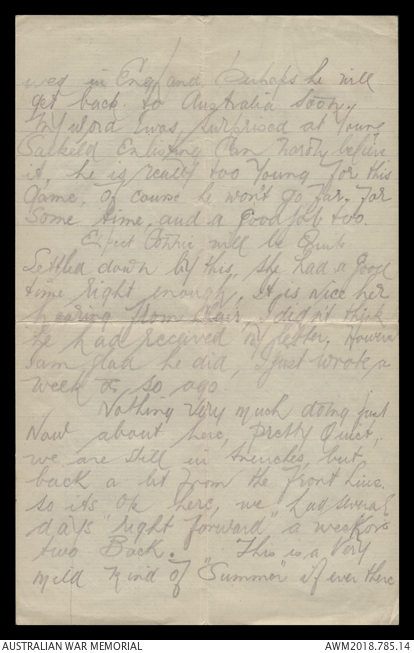 wed in England Perhaps he will
get back to Australia soon,
My word I was, surprised at Young
Salkeld Enlisting Can hardly believe
it, he is really too Young for this
Game, of course he won't go far, for
Some time, and a good job too.
Expect Connie will be Quite
Settled down by this, She had a good
time Right enough, it is nice her
hearing from Clair, I did n't think
he had received my letter, However
I am glad he did, I just wrote a
week or so ago.
Nothing Very much doing just
Now about here, pretty Quiet,
we are still in trenches, but
back a bit from the front line.
So its Ok here, we had several
days "right forward" a week or
two Back. This is a Very
mild Kind of "Summer" if ever there
AUSTRALIAN WAR MEMORIAL
AWM2018.785.14